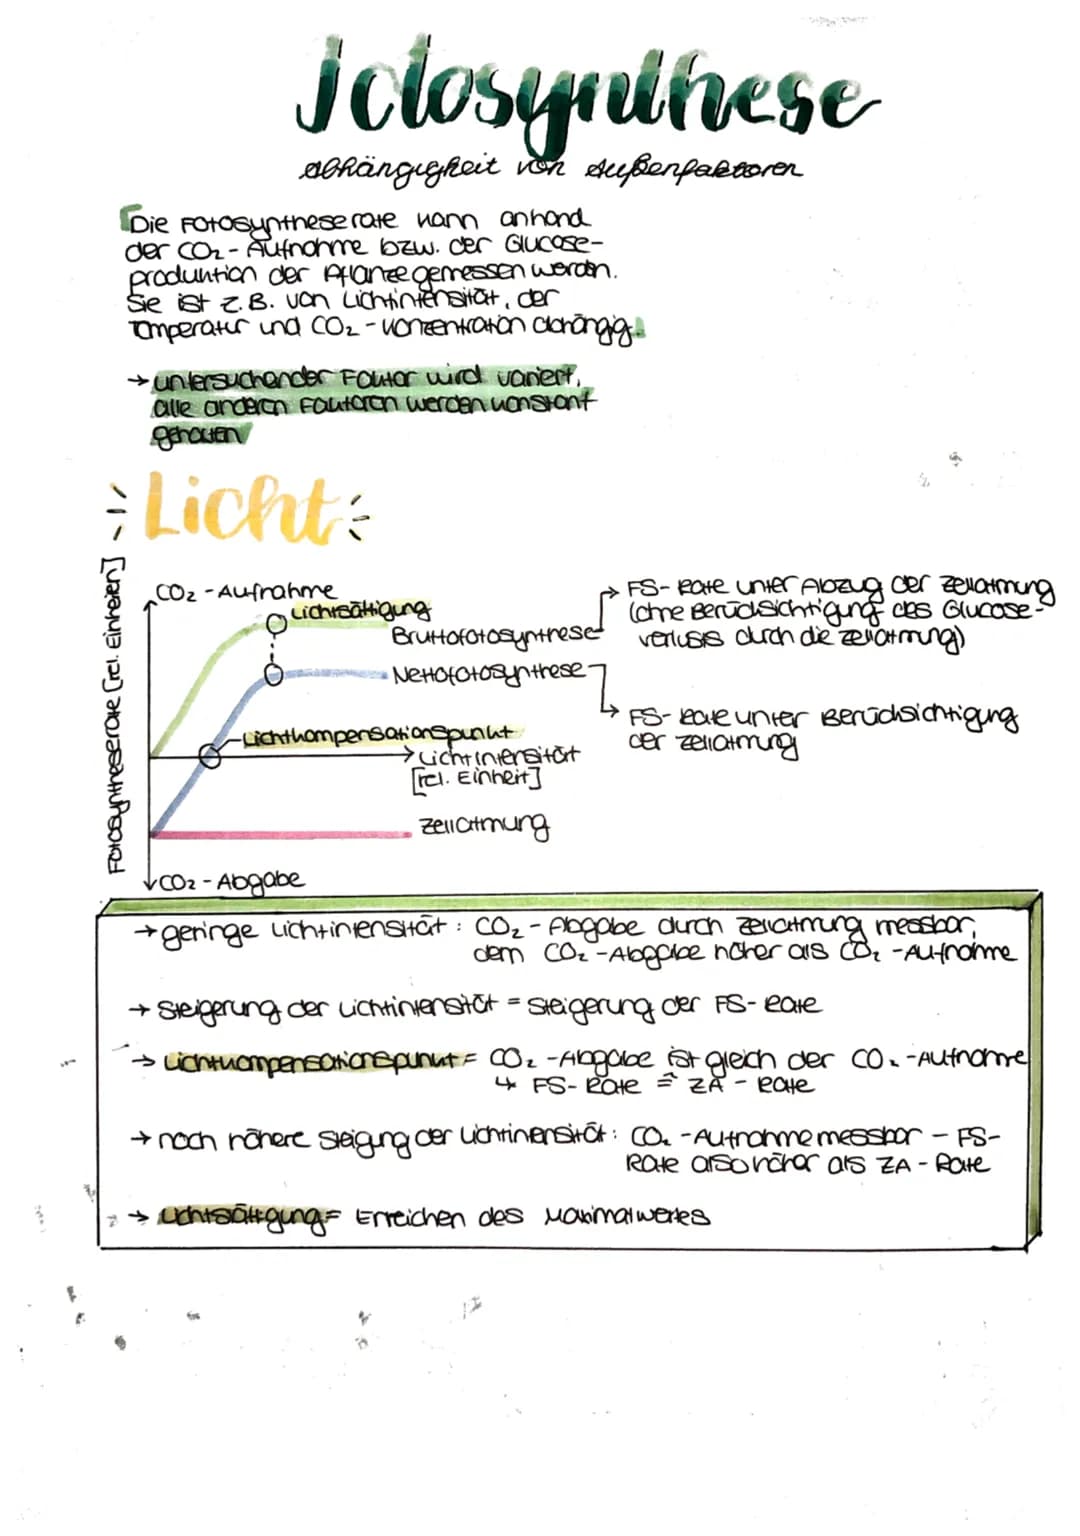 Fotosynthese
Abhängigkeit von Außenfaktoren
Die Fotosyntheserate kann anhand
der CO₂-Aufnahme bzw. der Glucose-
produktion der Pflanze gemessen werden.
Sie ist z.B. von Lichtintensität, der
Temperatur und CO₂-Konzentration abhängig.
→ untersuchender Faktor wird variiert,
alle anderen Faktoren werden konstant
gehalten
Licht
Fotosyntheserate [rel. Einheiten]
CO₂-Aufnahme
Lichtsättigung
Bruttofotosynthese
→ FS-Rate unter Abzug der Zellatmung
(ohne Berücksichtigung des Glucose-
verlusts durch die Zellatmung)
Nettofotosynthese
→ FS-Rate unter Berücksichtigung
der Zellatmung
Lichtkompensationspunkt
Lichtintensität
[rel. Einheit]
Zellatmung
CO₂-Abgabe
→ geringe Lichtintensität: CO₂-Abgabe durch Zellatmung messbar,
dem CO₂-Abgabe höher als CO₂-Aufnahme
→ Steigerung der Lichtintensität = Steigerung der FS-Rate
→ Lichtkompensationspunkt = CO₂-Abgabe ist gleich der CO₂-Aufnahme
↳ FS-Rate ≙ ZA-Rate
→ noch höhere Steigung der Lichtintensität: CO₂-Aufnahme messbar – FS-
Rate also höher als ZA-Rate
→ Lichtsättigung = Erreichen des Maximalwertes